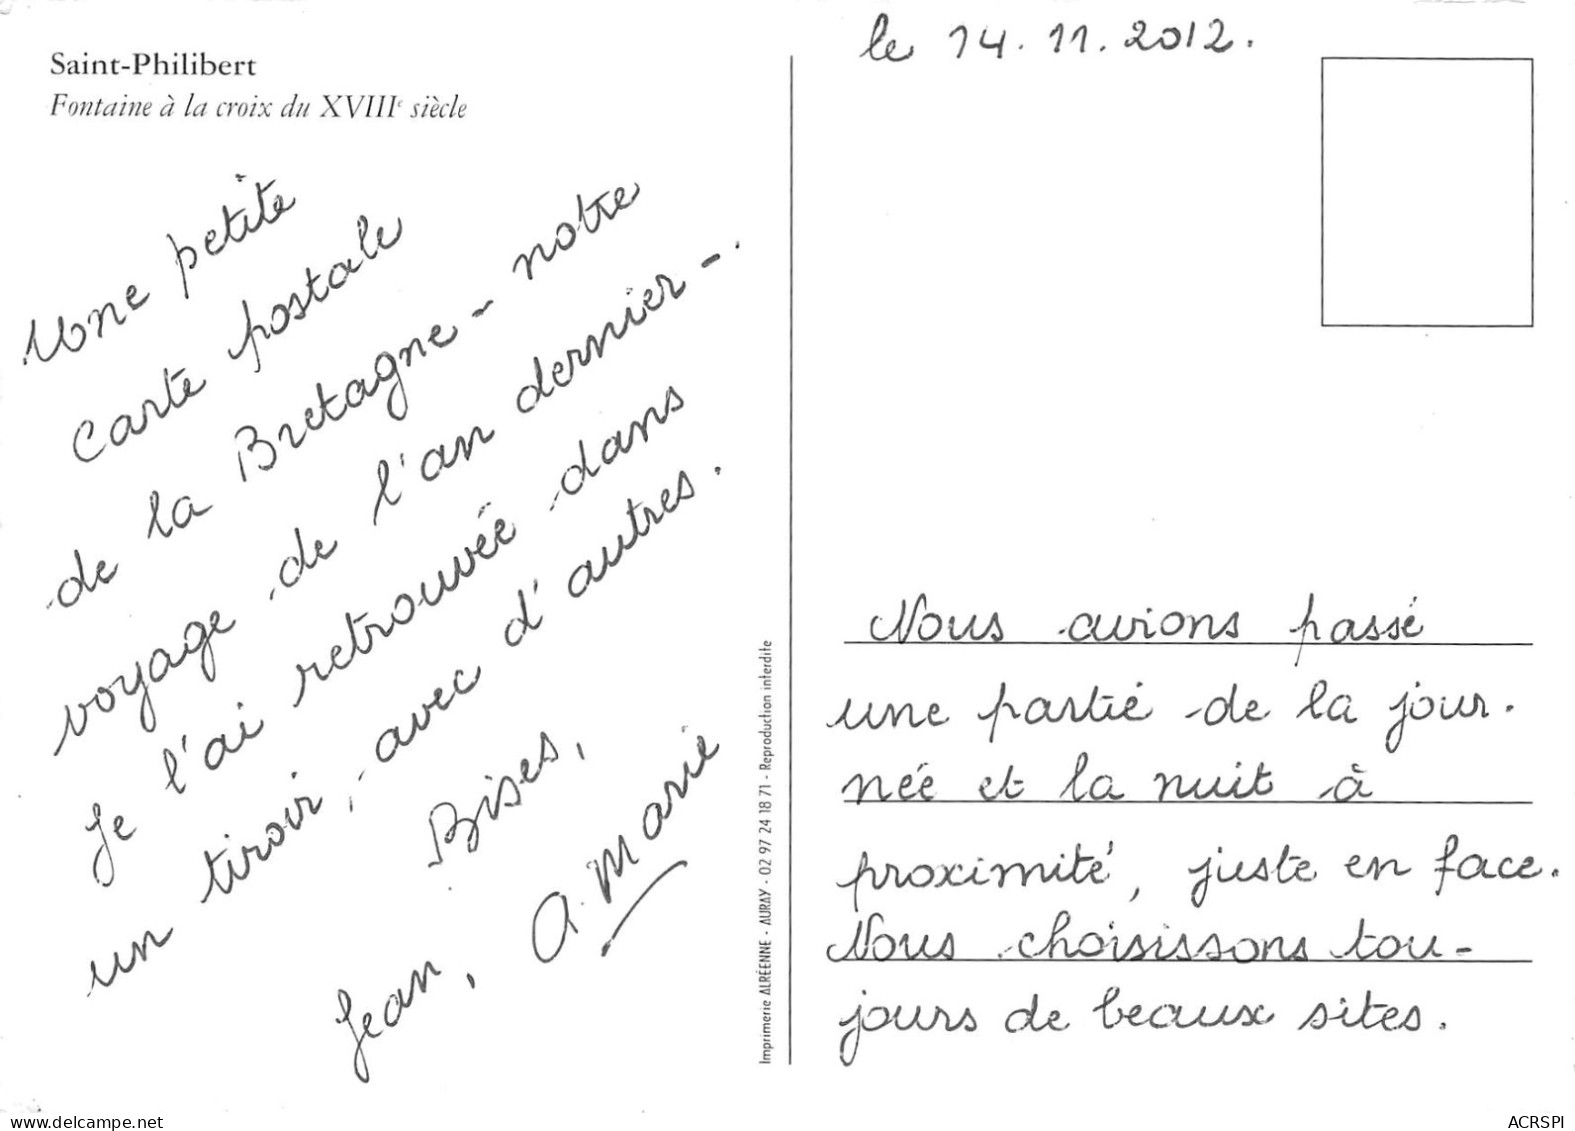 Saint-Philibert
Fontaine à la croix du XVIIIe siècle
Une petite
carte postale
de la Bretagne - notre
voyage de l'an dernier -.
Je l'ai retrouvée dans
un tiroir, avec d'autres.
Bises,
Jean, A. Marie
Imprimerie ALRÉENNE - AURAY - 02 97 24 18 71 - Reproduction interdite
le 14.11.2012.
Nous avions passé
une partie de la jour-
née et la nuit à
proximité, juste en face.
Nous choisissons tou-
jours de beaux sites.
www.delcampe.net
ACRSPI